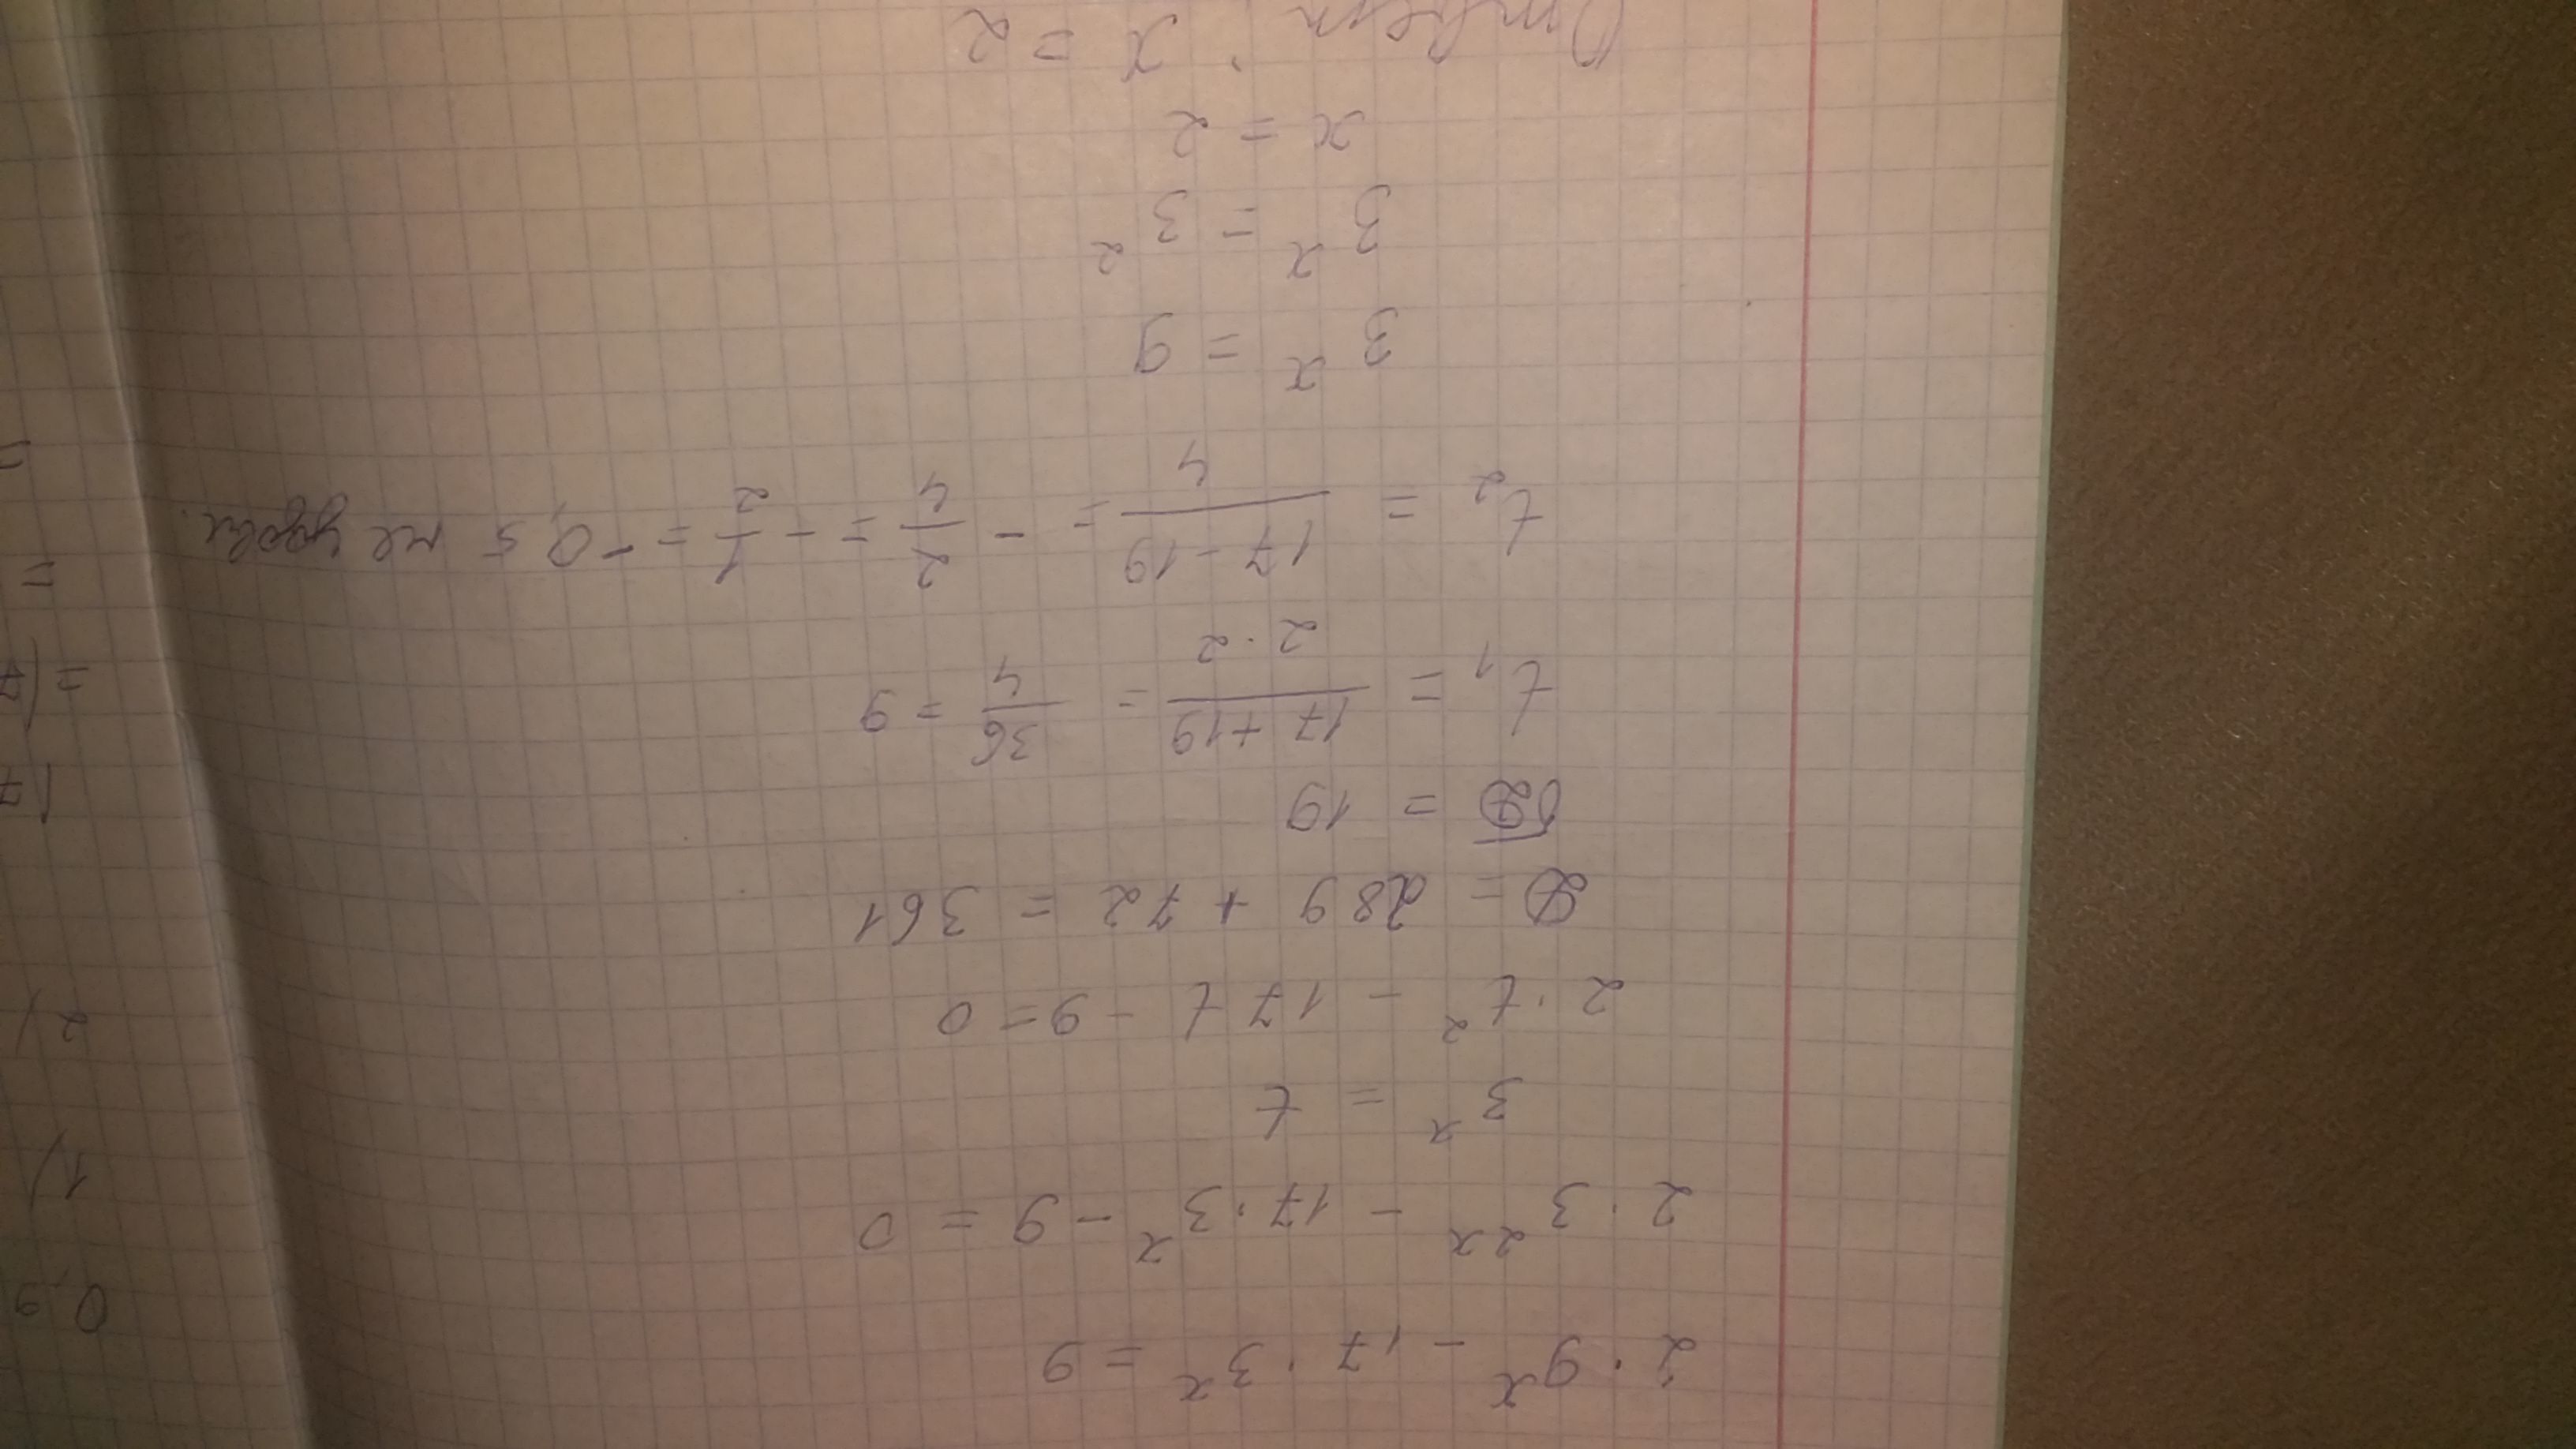 2·9ˣ - 17·3ˣ = 9
2·3²ˣ - 17·3ˣ - 9 = 0
3ˣ = t
2·t² - 17t - 9 = 0
D = 289 + 72 = 361
√D = 19
t₁ = (17+19)/(2·2) = 36/4 = 9
t₂ = (17-19)/4 = -2/4 = -1/2 = -0,5 не удовл.
3ˣ = 9
3ˣ = 3²
x = 2
Ответ: x = 2
0,9
1)
2)
17
=(7
=
=